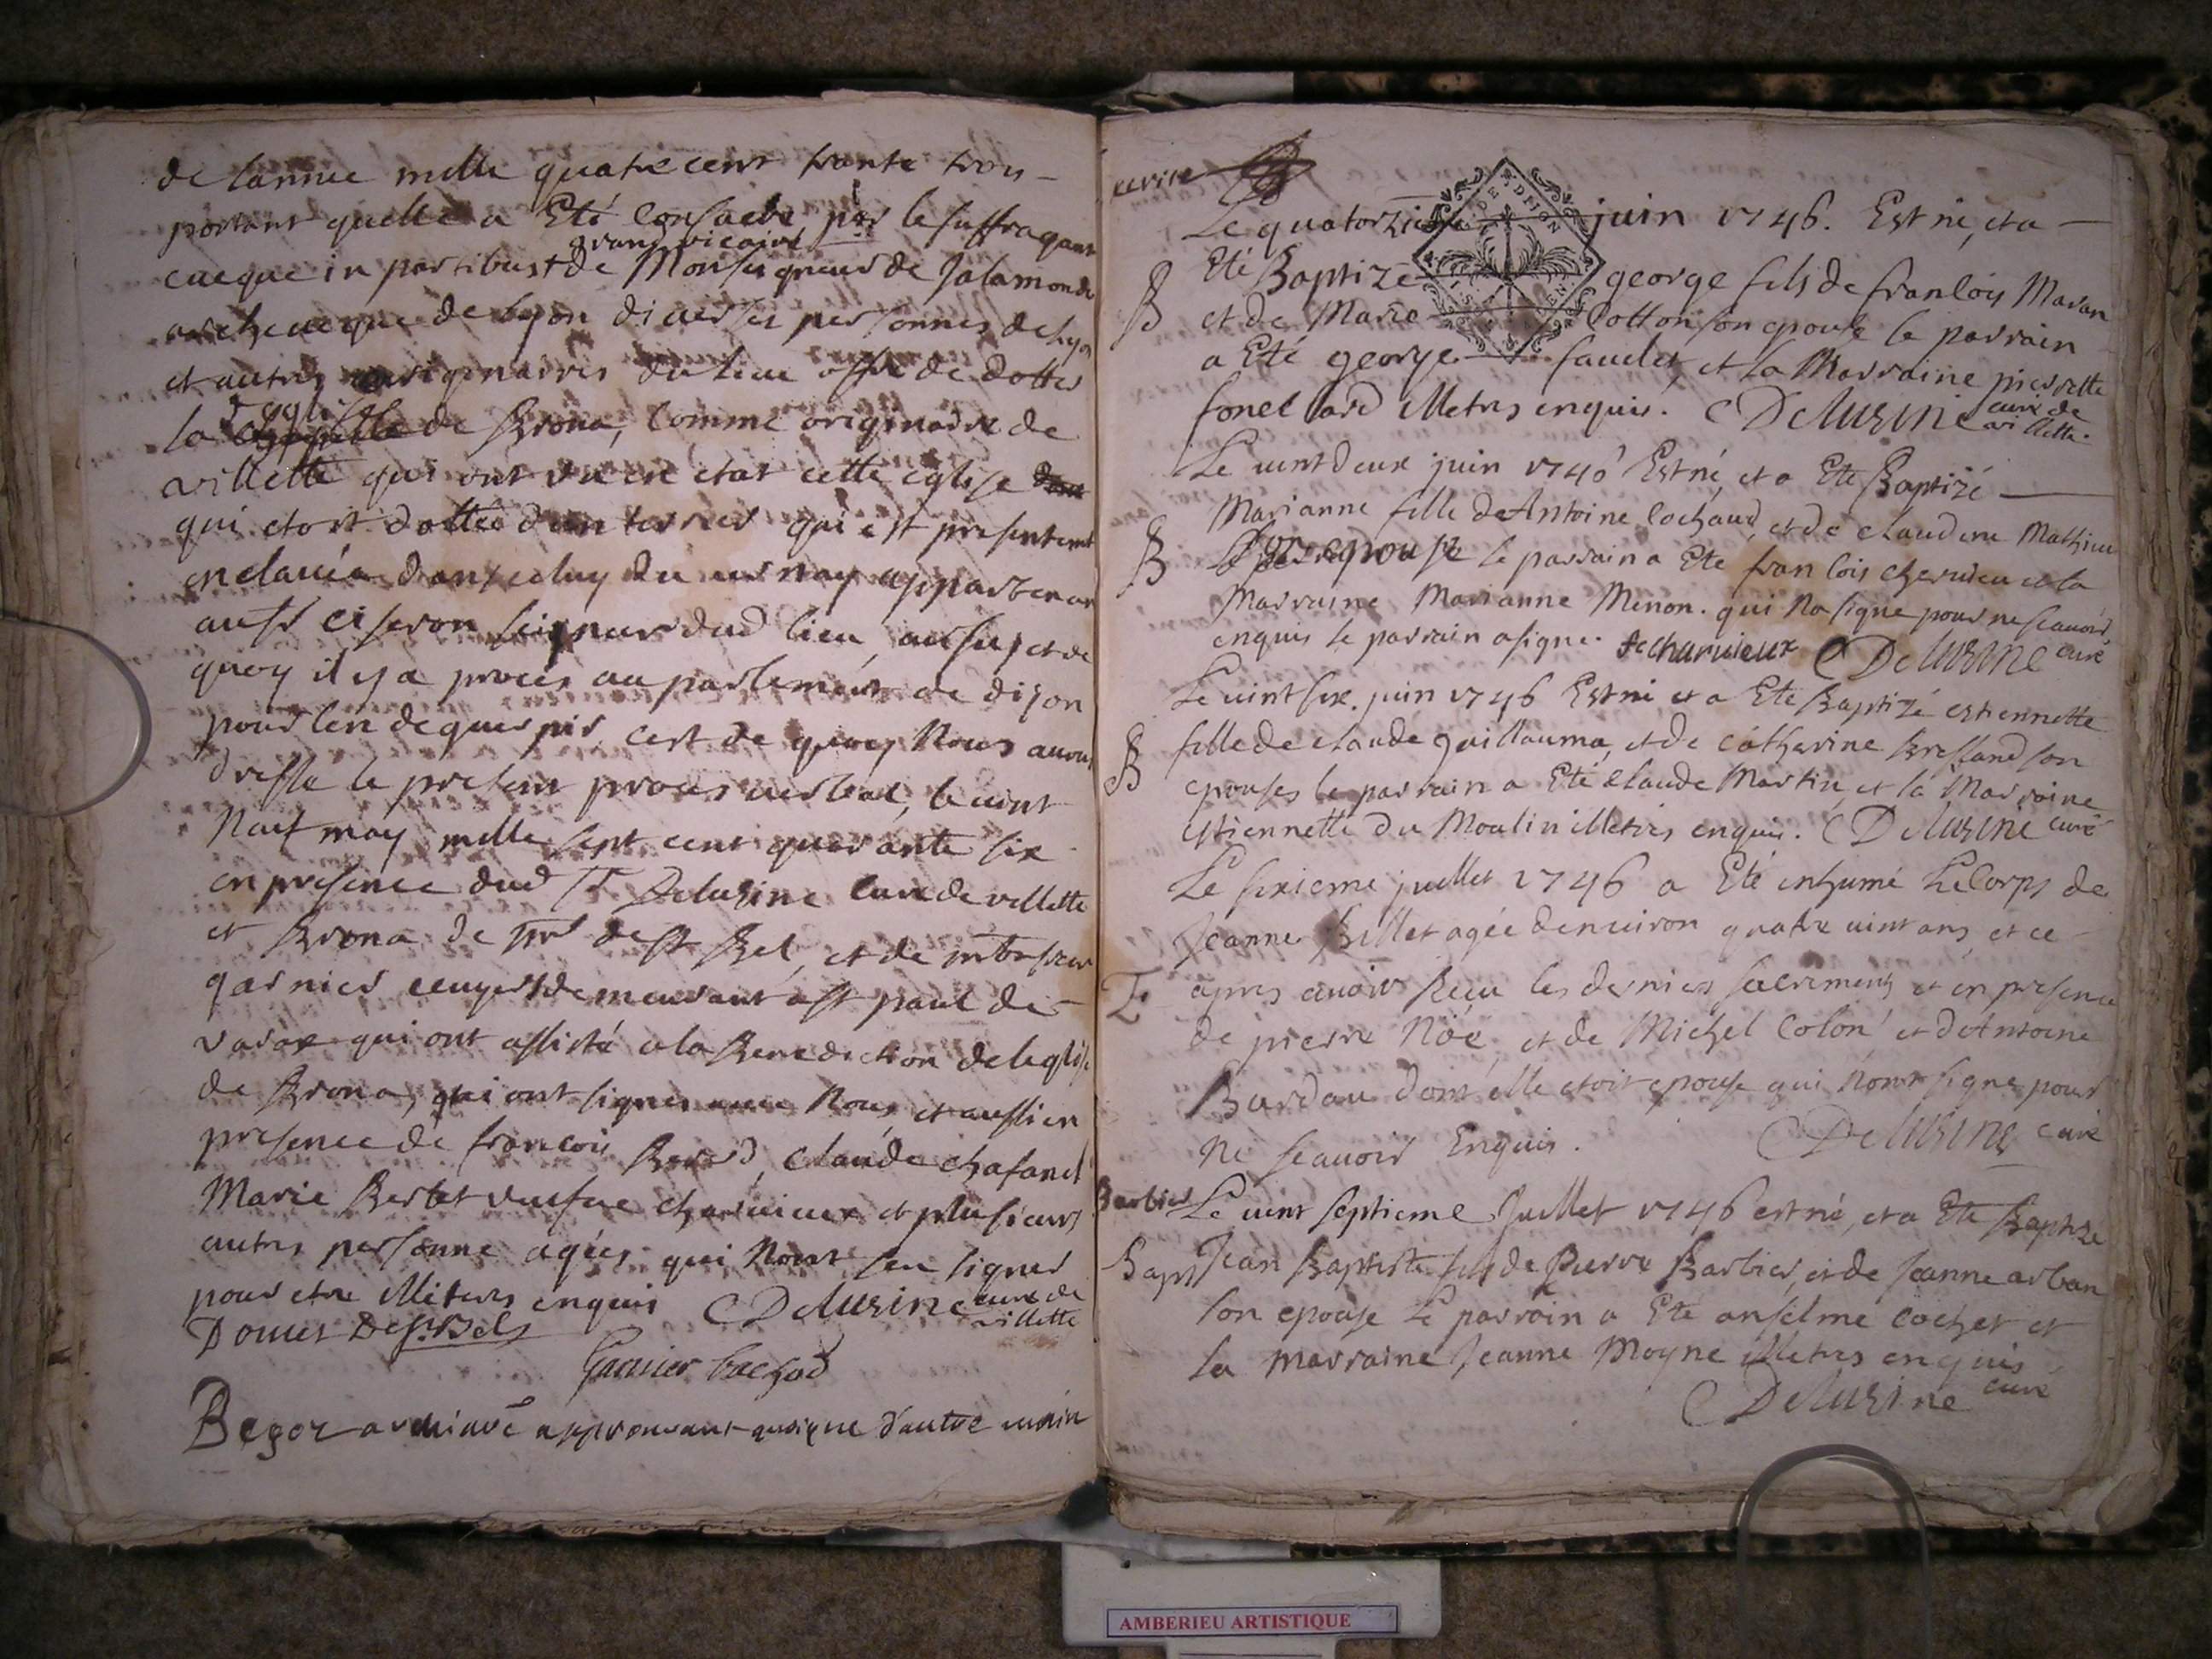 de lannee mille quatre cent trante trois
portant quelle a Eté Consacre par le suffragant
grand vicaire
eueque in partibus + de Monseigneur de Salamonde
archeueque de Lyon diuerses personnes de Lyon
et autres originaires du lieu offre de dotter
l'eglise
la chappelle de Brona, Comme originaire de
villette qui ont vu en etat cette eglise
qui etoit dottée d'un terrier qui est presentement
enclauée dans celuy du vernay appartenant
au Sr Ciseron seigneur dud lieu, au sujet de
quoy il y a procés au parlement de dijon
pour len deguerpir, cest de quoy Nous auons
dresse le present proces uerbal, le vint
Neuf may mille sept cent quarante six
en presence dud Sr Delusine Curé de villette
et Brona de Mr de St Bel, et de
garnier ecuyer demeurant a St paul de
varax qui ont assisté a la Benediction de leglise
de Brona, qui ont signés auec Nous, et aussi en
presence de francois Berard, Claude chafanel
Marie Berlet veusue charuieux et plusieurs
autres personne agées qui Nont seu signer
pour etre illiteres enquis Delusine curé de
villette
Donier De St Bel
Garnier bachod
Begoz archiaré approuuant quoique d'autre main
Le quatorzieme juin 1746. Est né, et a
Eté Baptizé george fils de francois Maran
B et de Marie Cotton son epouse le parrain
a Eté george faudet, et la Marraine pierrette
fonellard illetres enquis. Delusine curé de
villette.
Le uint deux juin 1746 Est né, et a Eté Baptizé
Marianne fille de Antoine Cochaud, et de claudine Mathieu
B son epouse le parrain a Eté francois cheruieu et la
Marraine Marianne Menon. qui Na signe pour ne scauoir
enquis le parrain a signe. f charuieux Delusine curé
Le uint six. juin 1746 Est né et a Eté Baptizé estiennette
B fille de claude guillauma, et de catherine bressand son
epouses le parrain a Eté Claude Martin, et la Marraine
estiennette du Moulin illetres enquis. Delusine curé
Le sixieme juillet 1746 a Eté inhumé Le Corps de
Jeanne Billet agée denuiron quatre uint ans et ce
E apres auoir Reçu les derniers sacrements et en presence
de pierre Nöe, et de Michel Colon et d'Antoine
Burdau dont elle etoit epouse qui Nont signe pour
Ne scauoir Enquis. Delusine curé
Barbier Le uint septieme Juillet 1746 est né, et a Eté Baptize
Bapt Jean Baptiste fils de Pierre Barbier, et de Jeanne arban
son epouse Le parrain a Eté anselme cochet et
la marraine Jeanne Moyne illetres enquis
Delusine curé
DE DIJON
AMBERIEU ARTISTIQUE